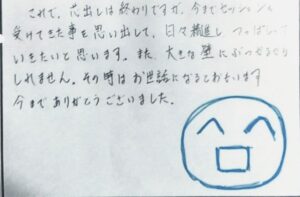 これで、花出しは終わりですが、今までセッションを
受けてきた事を思い出して、日々精進し、つっぱしって
いきたいと思います。また、大きな壁にぶつかるかも
しれません。その時はお世話になるとおもいます
今までありがとうございました。